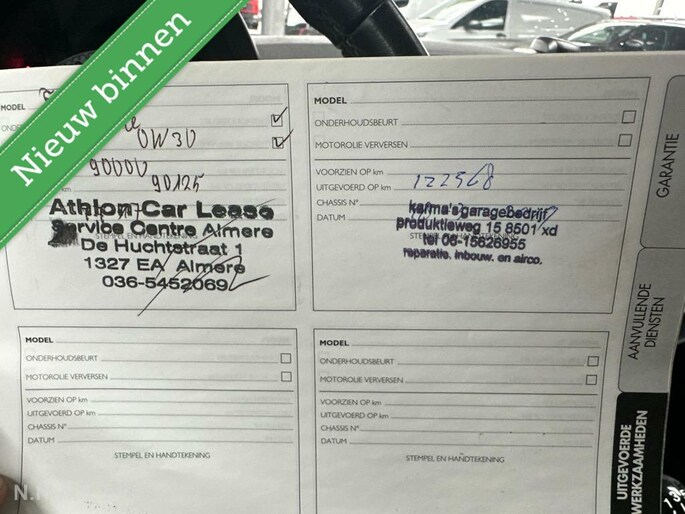 Nieuw binnen
MODEL
OW30
90000
90125
Athlon Car Lease
Service Centre Almere
STEMPEL EN HANDTEKENING
De Huchtstraat 1
1327 EA Almere
036-5452069
MODEL
ONDERHOUDSBEURT
MOTOROLIE VERVERSEN
VOORZIEN OP km
UITGEVOERD OP km 122568
CHASSIS N°
DATUM
karma's garagebedrijf
produktieweg 15 8501 xd
tel 06-15626955
reparatie. inbouw. en airco.
MODEL
ONDERHOUDSBEURT
MOTOROLIE VERVERSEN
VOORZIEN OP km
UITGEVOERD OP km
CHASSIS N°
DATUM
STEMPEL EN HANDTEKENING
MODEL
ONDERHOUDSBEURT
MOTOROLIE VERVERSEN
VOORZIEN OP km
UITGEVOERD OP km
CHASSIS N°
DATUM
STEMPEL EN HANDTEKENING
GARANTIE
AANVULLENDE
DIENSTEN
UITGEVOERDE
WERKZAAMHEDEN